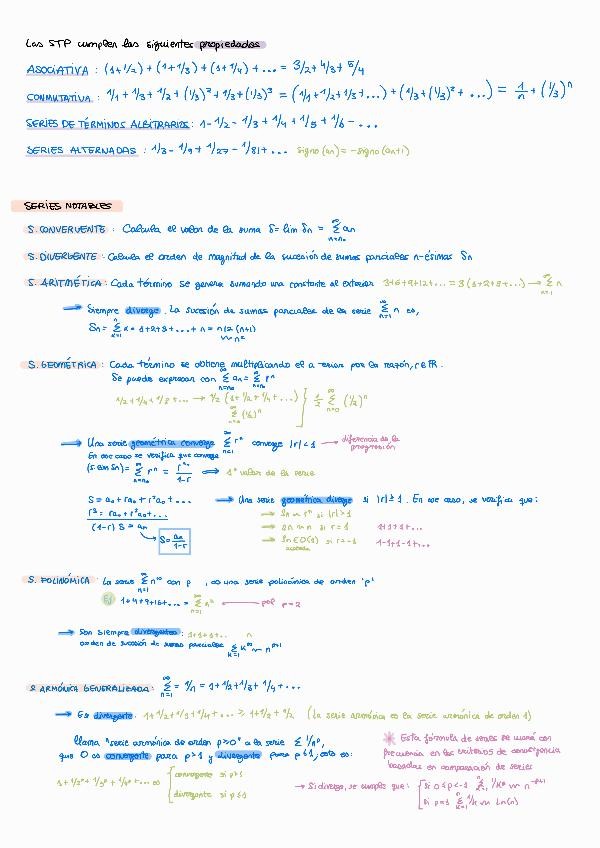 Las STP cumplen las siguientes propiedades
ASOCIATIVA : (1+1/2) + (1+1/3) + (1+1/4) + ... = 3/2 + 4/3 + 5/4
CONMUTATIVA : 1/1 + 1/3 + 1/2 + (1/3)² + 1/3 + (1/3)³ = (1/1 + 1/2 + 1/3 + ...) + (1/3 + (1/3)² + ...) = 1/n + (1/3)ⁿ
SERIES DE TÉRMINOS ALBITRARIOS : 1 - 1/2 - 1/3 + 1/4 + 1/5 + 1/6 - ...
SERIES ALTERNADAS : 1/3 - 1/9 + 1/27 - 1/81 + ... signo (an) = - signo (an+1)
SERIES NOTABLES
S. CONVERGENTE : Calcula el valor de la suma S = lim Sn = Σ an
S. DIVERGENTE : Calcula el orden de magnitud de la sucesión de sumas parciales n-ésimas Sn
S. ARITMÉTICA : Cada término se genera sumando una constante al exterior 3+6+9+12+... = 3(1+2+3+...) → Σ n
→ Siempre diverge. La sucesión de sumas parciales de la serie Σ n es,
Sn = Σ k = 1+2+3+...+n = n/2 (n+1)
S. GEOMÉTRICA : Cada término se obtiene multiplicando el a por la razón, r∈ℝ.
Se puede expresar con Σ an = Σ rⁿ
1/2 + 1/4 + 1/8 + ... → 1/2 (1 + 1/2 + 1/4 + ...) 1/2 Σ (1/2)ⁿ
Σ (1/2)ⁿ
→ Una serie geométrica converge Σ rⁿ converge |r|<1 → diferencia de la progresión
En ese caso se verifica que converge
Σ rⁿ = ⟹ 1º valor de la serie
S = a₀ + ra₀ + r²a₀ + ...
rS = ra₀ + r²a₀ + ...
(1-r) S = an
S = an/1-r
→ Una serie geométrica diverge si |r|≥1. En ese caso, se verifica que:
→ Sn ~ rⁿ si |r|>1
→ Sn ~ n si r=1 1+1+1+...
→ Sn ∈ O(1) si r=-1 1-1+1-1+...
acotada
S. POLINÓMICA : La serie con p , es una serie polinómica de orden 'p'
Ej 1+4+9+16+... = Σ n² p=2
→ Son siempre divergentes : 1+1+1+.. n
orden de sucesión de sumas parciales Σ kᵖ ~ nᵖ⁺¹
S. ARMÓNICA GENERALIZADA : Σ = 1/n = 1 + 1/2 + 1/3 + 1/4 + ...
→ Es divergente. 1 + 1/2 + 1/3 + 1/4 + ... > 1 + 1/2 + 1/2 (la serie armónica es la serie armónica de orden 1)
llama "serie armónica de orden p>0" a la serie Σ 1/nᵖ,
que es convergente para p>1 y divergente para p≤1, esto es:
1 + 1/2ᵖ + 1/3ᵖ + 1/4ᵖ + ... es
convergente si p>1
divergente si p≤1
Esta fórmula de series se usará con
frecuencia en los criterios de convergencia
basadas en comparación de series
→ Si diverge, se cumple que:
si p=1 Σ 1/k ~ ln(n)